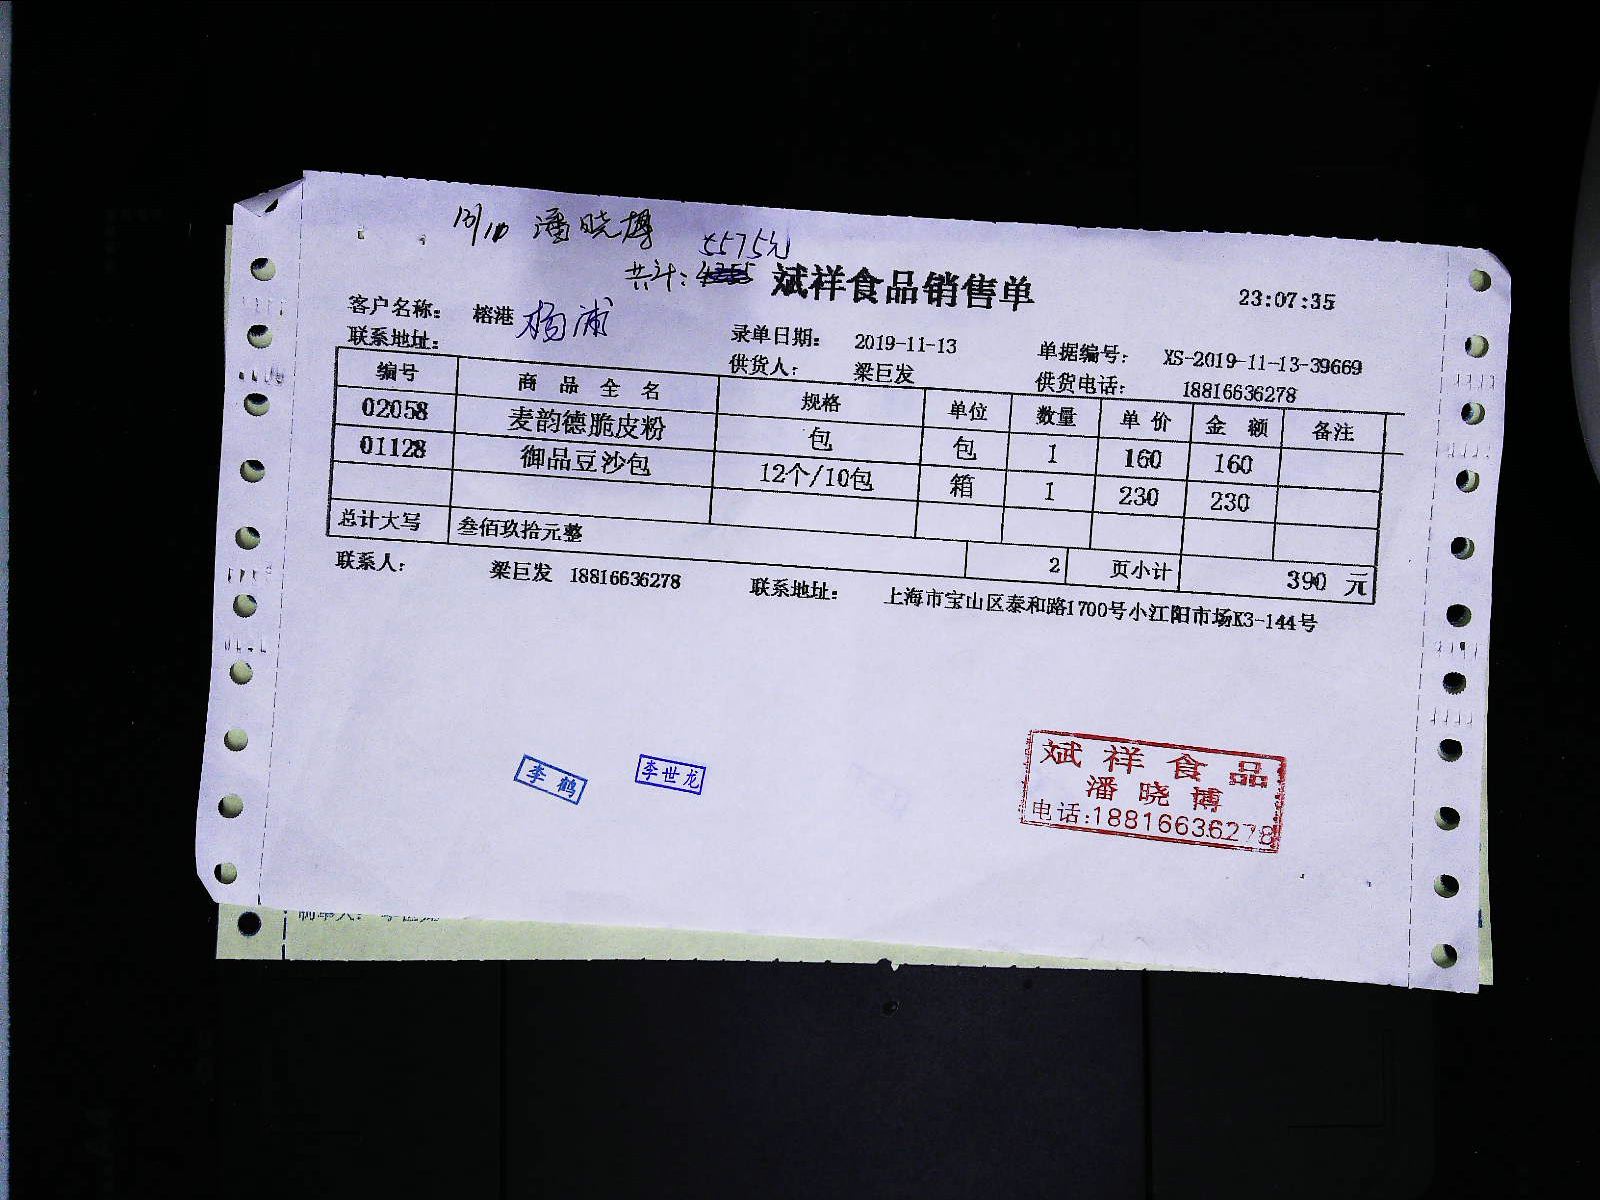 潘晓博
5575元
共计:
斌祥食品销售单
23:07:35
客户名称: 榕港 杨浦
录单日期: 2019-11-13
单据编号: XS-2019-11-13-39669
联系地址:
供货人: 梁巨发
供货电话: 18816636278
编号 商品全名 规格 单位 数量 单价 金额 备注
02058 麦韵德脆皮粉 包 包 1 160 160
01128 御品豆沙包 12个/10包 箱 1 230 230
总计大写 叁佰玖拾元整
2 页小计 390 元
联系人: 梁巨发 18816636278 联系地址: 上海市宝山区泰和路1700号小江阳市场K3-144号
李鹤
李世龙
斌祥食品
潘晓博
电话:18816636278